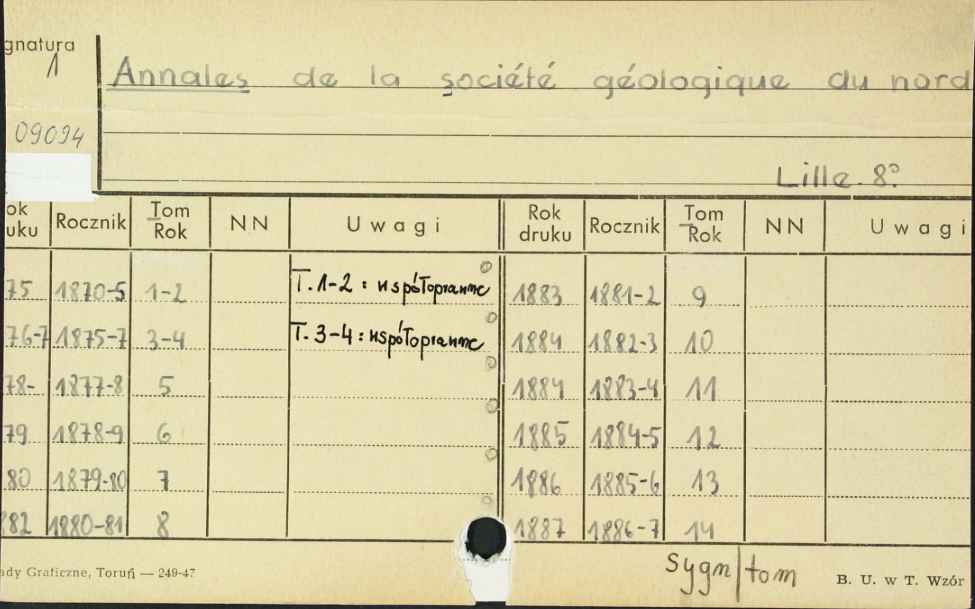 gnatura
1
Annales de la société géologique du nord
09094
Lille. 8º
ok uku Rocznik Tom Rok NN Uwagi Rok druku Rocznik Tom Rok NN Uwagi
75 1870-5 1-2 T. 1-2 : współoprawne 1883 1881-2 9
76-7 1875-7 3-4 T. 3-4 : współoprawne 1884 1882-3 10
78- 1877-8 5 1884 1883-4 11
79 1878-9 6 1885 1884-5 12
80 1879-80 7 1886 1885-6 13
82 1880-81 8 1887 1886-7 14
ady Graficzne, Toruń — 249-47
sygn/tom
B. U. w T. Wzór